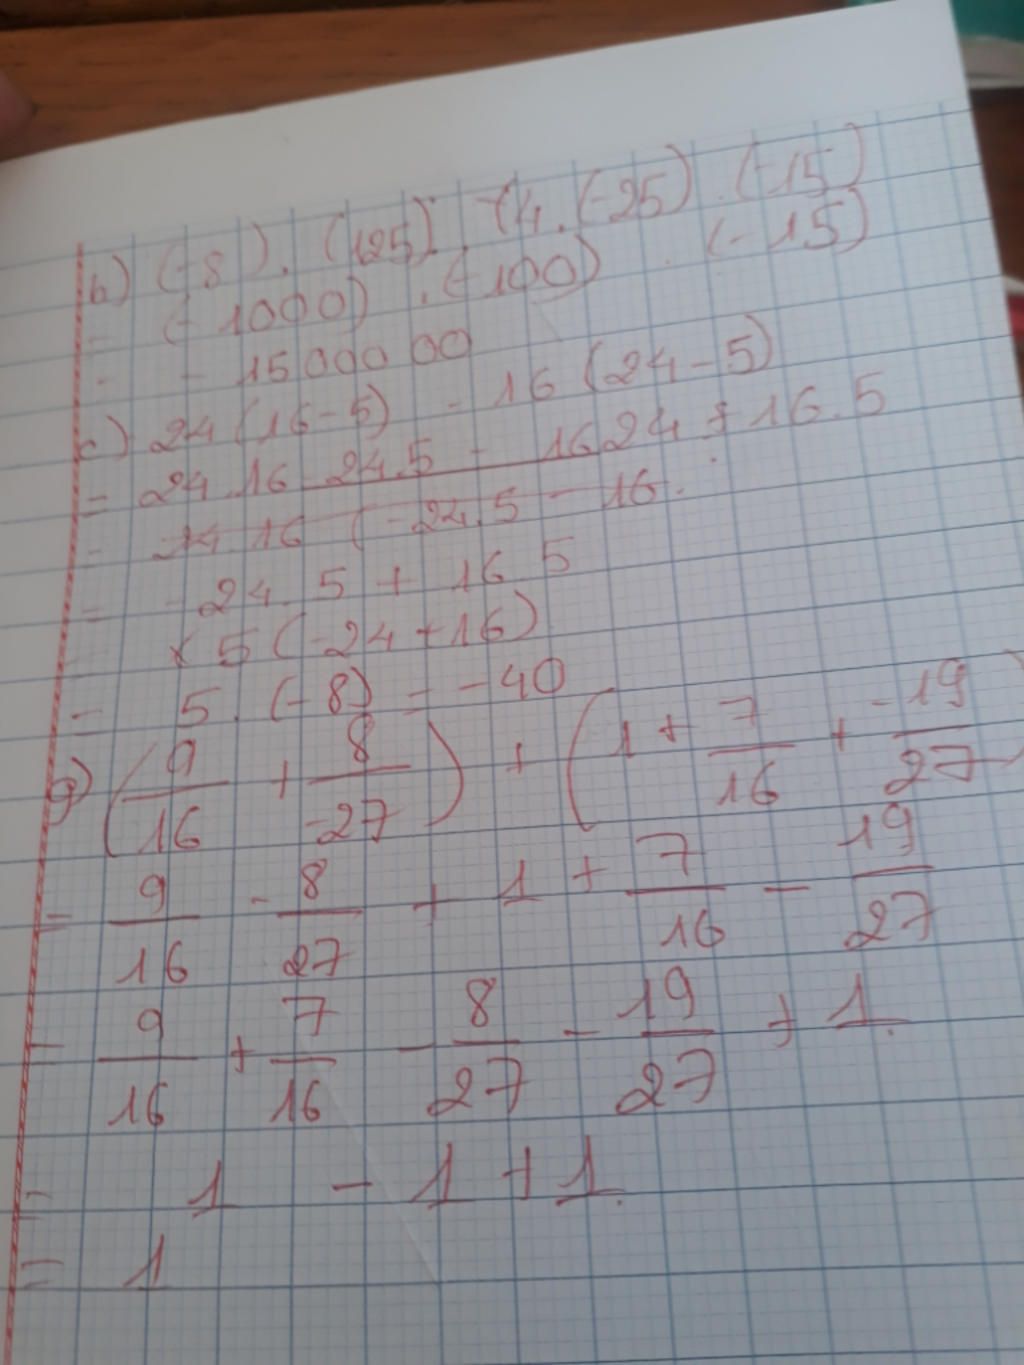 b) (-8). (125). (4. (-25) . (-15)
= (-1000) . (-100) . (-15)
= - 1500000
c) 24(16-5) - 16(24-5)
= 24.16-24.5 - 1624 + 16.5
= 24.16 (-24.5 - 16.
= -24.5 + 16 5
5(-24+16)
= 5. (-8) = -40
g) (9/16 + 8/-27) + (1 + 7/16 + -19/27)
= 9/16 - 8/27 + 1 + 7/16 - 19/27
= 9/16 + 7/16 - 8/27 - 19/27 + 1.
= 1 - 1 + 1.
= 1